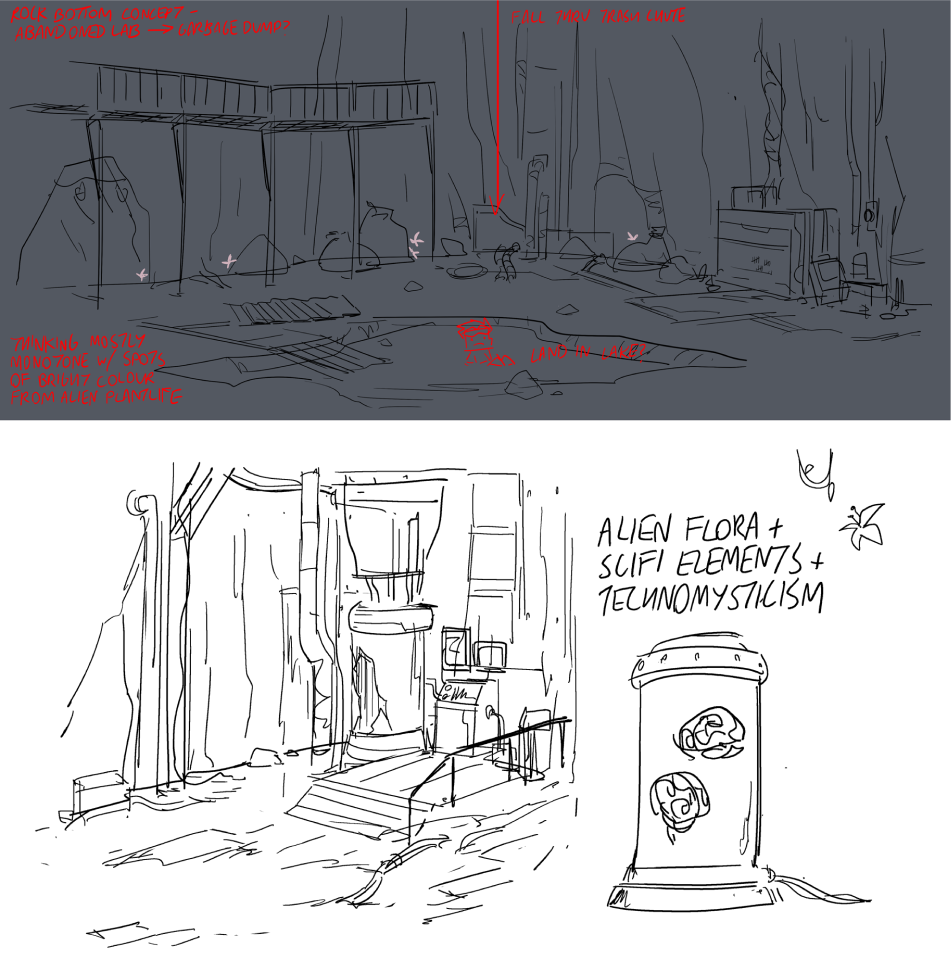 ROCK BOTTOM CONCEPT -
ABANDONED LAB → GARBAGE DUMP?
FALL THRU TRASH CHUTE
LAND IN LAKE?
THINKING MOSTLY
MONOTONE W/ SPOTS
OF BRIGHT COLOUR
FROM ALIEN PLANTLIFE
ALIEN FLORA +
SCIFI ELEMENTS +
TECHNOMYSTICISM